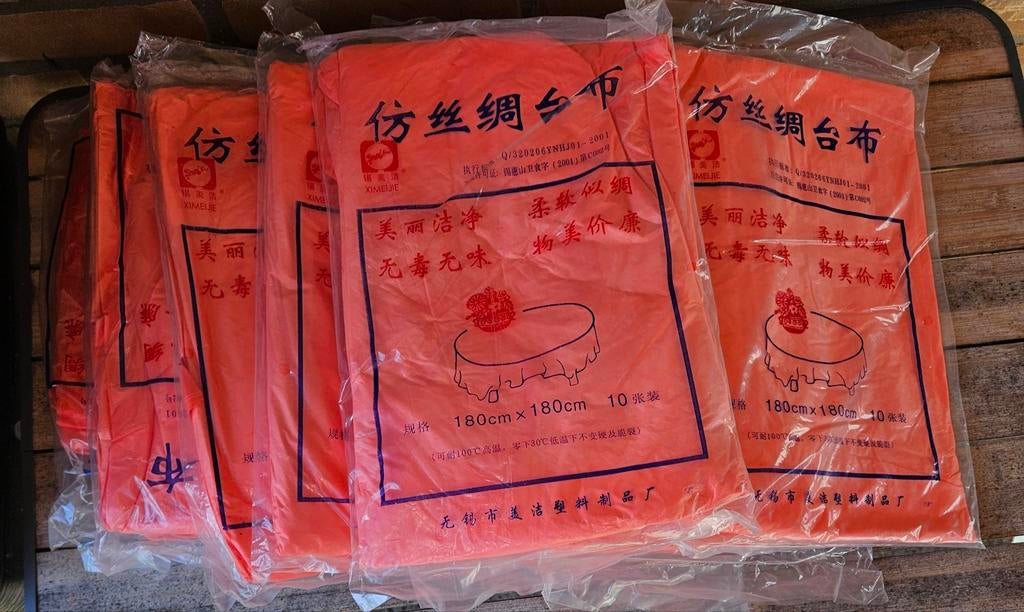 仿丝绸台布
执行标准：Q/320206YNHJ01-2001
卫生许可证：锡惠山卫食字（2001）第C002号
锡美洁
XIMEIJIE
美丽洁净 柔软似绸
无毒无味 物美价廉
规格 180cm×180cm 10张装
（可耐100℃高温，零下30℃低温下不变硬及脆裂）
无锡市美洁塑料制品厂
仿丝绸台布
执行标准：Q/320206YNHJ01-2001
卫生许可证：锡惠山卫食字（2001）第C002号
美丽洁净 柔软似绸
无毒无味 物美价廉
规格 180cm×180cm 10张装
无锡市美洁塑料制品厂
仿丝绸
锡美洁
XIMEIJIE
美丽洁
无毒
规格